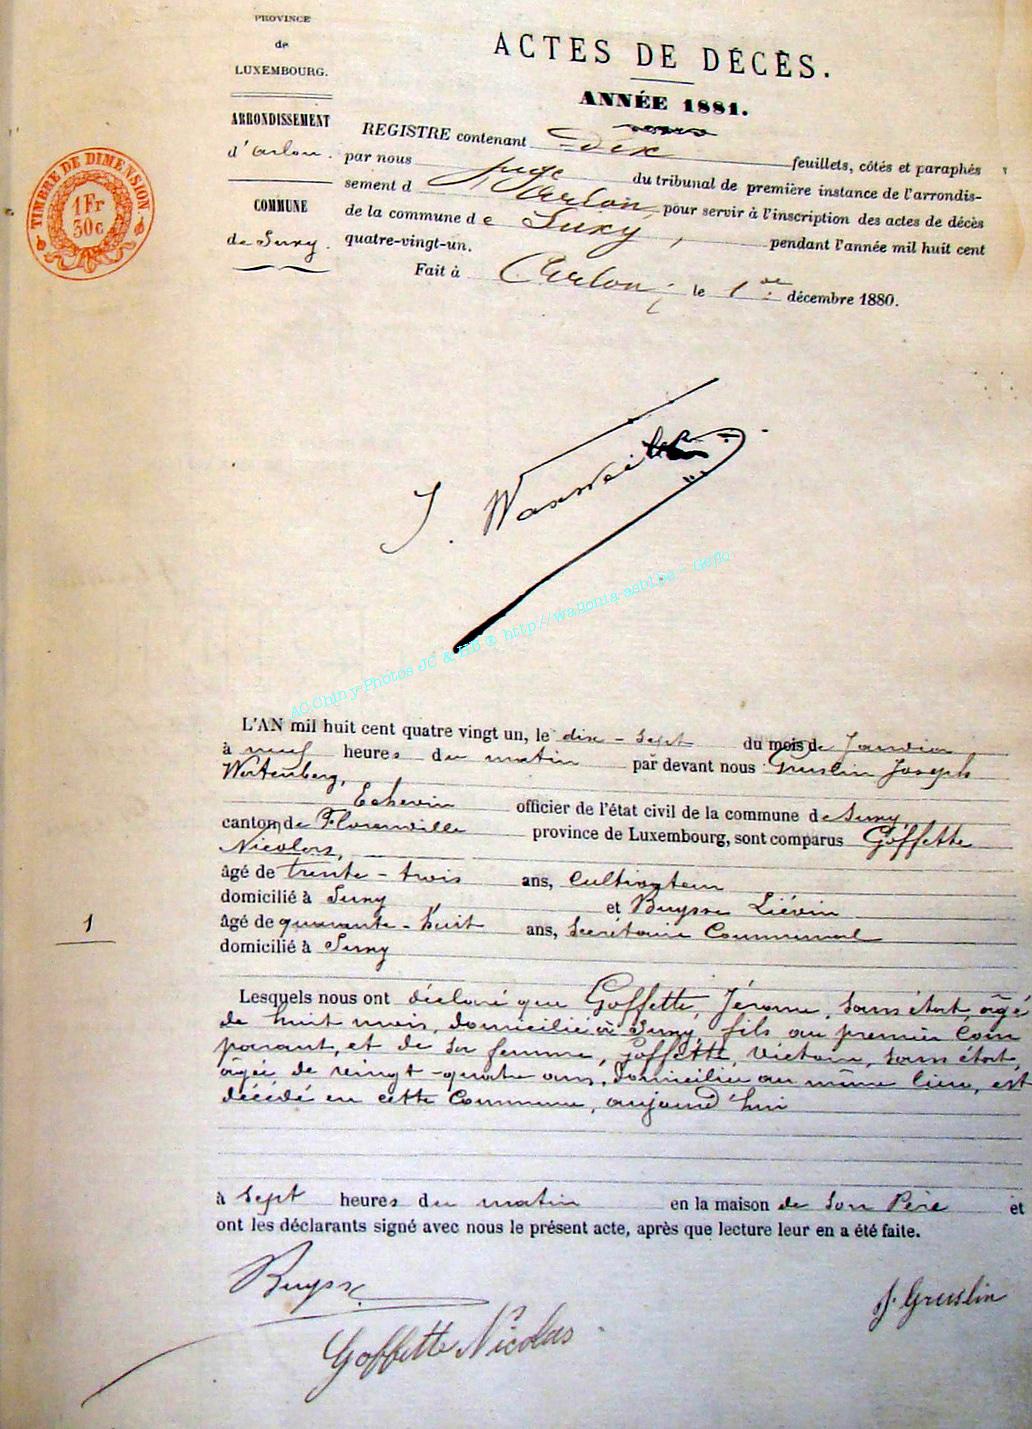 PROVINCE
de
LUXEMBOURG.
ARRONDISSEMENT
d'Arlon.
COMMUNE
de Suxy.
TIMBRE DE DIMENSION
1 Fr
30 c
ACTES DE DÉCÈS.
ANNÉE 1881.
REGISTRE contenant dix feuillets, côtés et paraphés
par nous juge du tribunal de première instance de l'arrondis-
sement d'Arlon pour servir à l'inscription des actes de décès
de la commune de Suxy, pendant l'année mil huit cent
quatre-vingt-un.
Fait à Arlon, le 1er décembre 1880.
J.
AC Chiny-Photos JC & MB @ http://wallonia-asbl.be - Geflo
L'AN mil huit cent quatre vingt un, le dix-sept du mois de Janvier
à neuf heures du matin par devant nous Gruslin Joseph
Wortenberg,
Echevin officier de l'état civil de la commune de Suxy,
canton de Florenville province de Luxembourg, sont comparus Goffette
Nicolas,
âgé de trente-trois ans, cultivateur
domicilié à Suxy et Buysse Liévin
âgé de quarante-huit ans, Secrétaire Communal
domicilié à Suxy
1
Lesquels nous ont déclaré que Goffette, Jérome, sans état, âgé
de huit mois, domicilié à Suxy, fils du premier Com
parant, et de sa femme, Goffette, Victoire, sans état,
âgée de vingt-quatre ans, domiciliée au même lieu, est
décédé en cette Commune, aujourd'hui
à sept heures du matin en la maison de son Père et
ont les déclarants signé avec nous le présent acte, après que lecture leur en a été faite.
Buysse
J. Gruslin
Goffette Nicolas